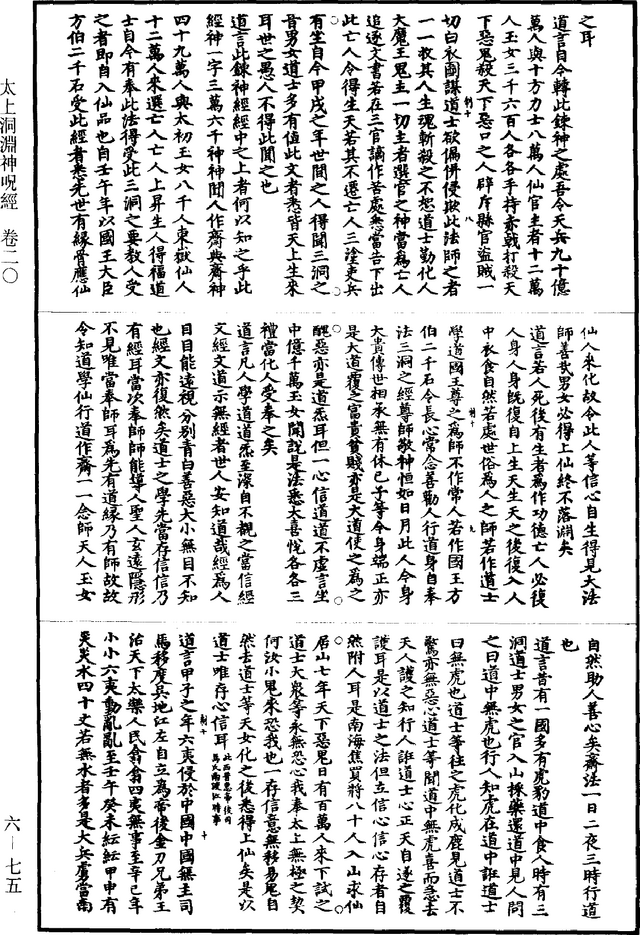 之耳
道言自今轉此鍊神之處吾令天兵九十億
萬人與十方力士八萬人仙官主者十二萬
人玉女三千六百人各各手持赤戟打殺天
下惡鬼殺天下惡口之人辟斥縣官盜賊一
切白衣
謀道士欲偏併侵欺此法師之者
一一收其人生魂斬殺之不恕道士勤化人
大魔王鬼主一切主者選官之神當為亡人
追逐文書若在三官謫作苦處無當告下出
此亡人令得生天若其不遷亡人三塗吏兵
有坐自今甲戌之年世間之人得聞三洞之
音男女道士多有值此文者悉皆天上生來
耳世之愚人不得此聞之也
道言此鍊神經經中之上者何以知之乎此
經神一字三萬六千神神聞人作齋與齋神
四十九萬人與太初玉女八千人東嶽仙人
十二萬人來選亡人亡人上昇生人得福道
士自今有奉此法得受此三洞之要教人受
之者即自入仙品也自壬午年以國王大臣
方伯二千石受此經者悉先世有緣骨應仙
太上洞淵神呪經 卷二〇
仙人來化故令此人等信心自生得見大法
師善哉男女必得上仙終不落淵矣
道言若人死後有生者為作功德亡人必復
人身人身既復自上生天生天之後復入人
中衣食自然若處世俗為人之師若作道士
學道國王尊之為師不作常人若作國王方
伯二千石令長心常念善勸人行道身自奉
法三洞之經尊師敬神恒如日月此人今身
大貴傳世相承無有休已子等今身端正亦
是大道覆之富貴貧賤亦是大道使之為之
醜惡亦是道悉耳但一心信道道不虛言坐
中億千萬玉女聞說是法悉大喜悅各各三
禮當化人受奉之矣
道言凡人學道道悉至深自不覩之當信經
文經文道示無經者世人安知道哉經為人
目目能遠視分別青白善惡大小無目不知
也經文亦復然矣道士之學先當存信信乃
有經耳當次奉師師能導人聖人玄遠隱形
不見唯當奉師耳為先有道緣乃有師故故
令知道學仙行道作齋一一念師天人玉女
自然助人善心矣齋法一日二夜三時行道
也
道言昔有一國多有虎豹道中食人時有三
洞道士男女之官入山採藥還道中見人問
之曰道中無虎也行人知虎在道中誑道士
曰無虎也道士等往之虎化成鹿見道士不
驚亦無惡心道士等聞道中無虎喜而急去
天人護之知行人誑道士心正天自遂之覆
護耳是以道士之法但立信心信心存者自
然附人耳是南海焦買將八十人入山求仙
居山七年天下惡鬼日有百萬人來下試之
道士大衆等永無恐心我奉太上無極之契
何汝小鬼來恐我也一存信意無移易鬼自
然去道士等天女化之後悉得上仙矣是以
道士唯存心信耳
道言甲子之年六夷侵於中國中國無主司
馬移度吳地江左自立為帝後金刀兄弟王
治天下太樂人民翕翕四夷無事至辛巳年
小小六夷動亂亂至壬午癸未紜紜甲申有
災災水四十丈若無水者多是大兵虜當南
六－七五